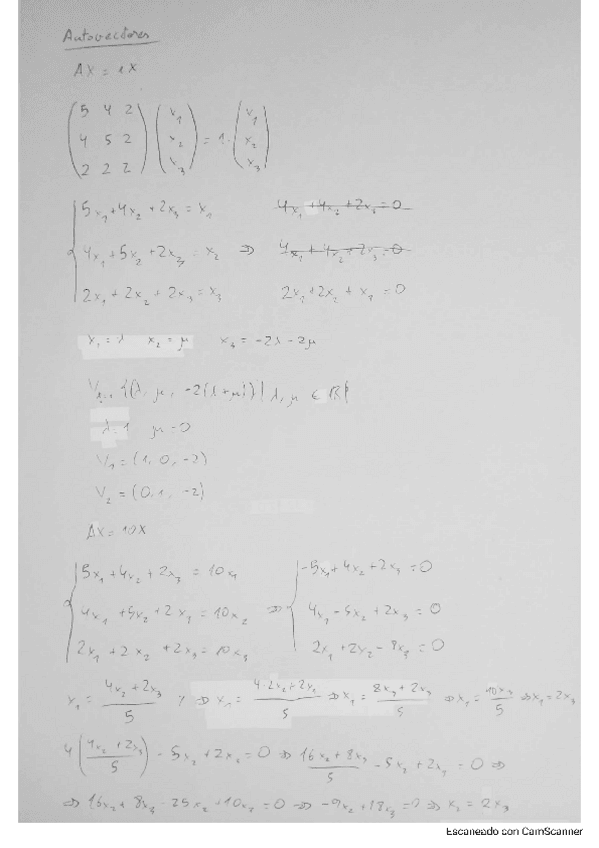 Autovectores
AX = 1X
(5 4 2) (x₁) = 1· (x₁)
(4 5 2) (x₂) (x₂)
(2 2 2) (x₃) (x₃)
5x₁ + 4x₂ + 2x₃ = x₁ 4x₁ + 4x₂ + 2x₃ = 0
4x₁ + 5x₂ + 2x₃ = x₂ ⇒ 4x₁ + 4x₂ + 2x₃ = 0
2x₁ + 2x₂ + 2x₃ = x₃ 2x₁ + 2x₂ + x₃ = 0
x₁ = λ x₂ = μ x₃ = -2λ - 2μ
{(λ, μ, -2(λ+μ)) | λ, μ ∈ ℝ}
λ = 1 μ = 0
V₁ = (1, 0, -2)
V₂ = (0, 1, -2)
AX = 10X
5x₁ + 4x₂ + 2x₃ = 10x₁ -5x₁ + 4x₂ + 2x₃ = 0
4x₁ + 5x₂ + 2x₃ = 10x₂ ⇒ 4x₁ - 5x₂ + 2x₃ = 0
2x₁ + 2x₂ + 2x₃ = 10x₃ 2x₁ + 2x₂ - 8x₃ = 0
x₁ = (4x₂ + 2x₃)/5 ⇒ x₁ = (4·2x₃ + 2x₃)/5 ⇒ x₁ = (8x₃ + 2x₃)/5 ⇒ x₁ = 10x₃/5 ⇒ x₁ = 2x₃
4((4x₂ + 2x₃)/5) - 5x₂ + 2x₃ = 0 ⇒ (16x₂ + 8x₃)/5 - 5x₂ + 2x₃ = 0 ⇒
⇒ 16x₂ + 8x₃ - 25x₂ + 10x₃ = 0 ⇒ -9x₂ + 18x₃ = 0 ⇒ x₂ = 2x₃
Escaneado con CamScanner